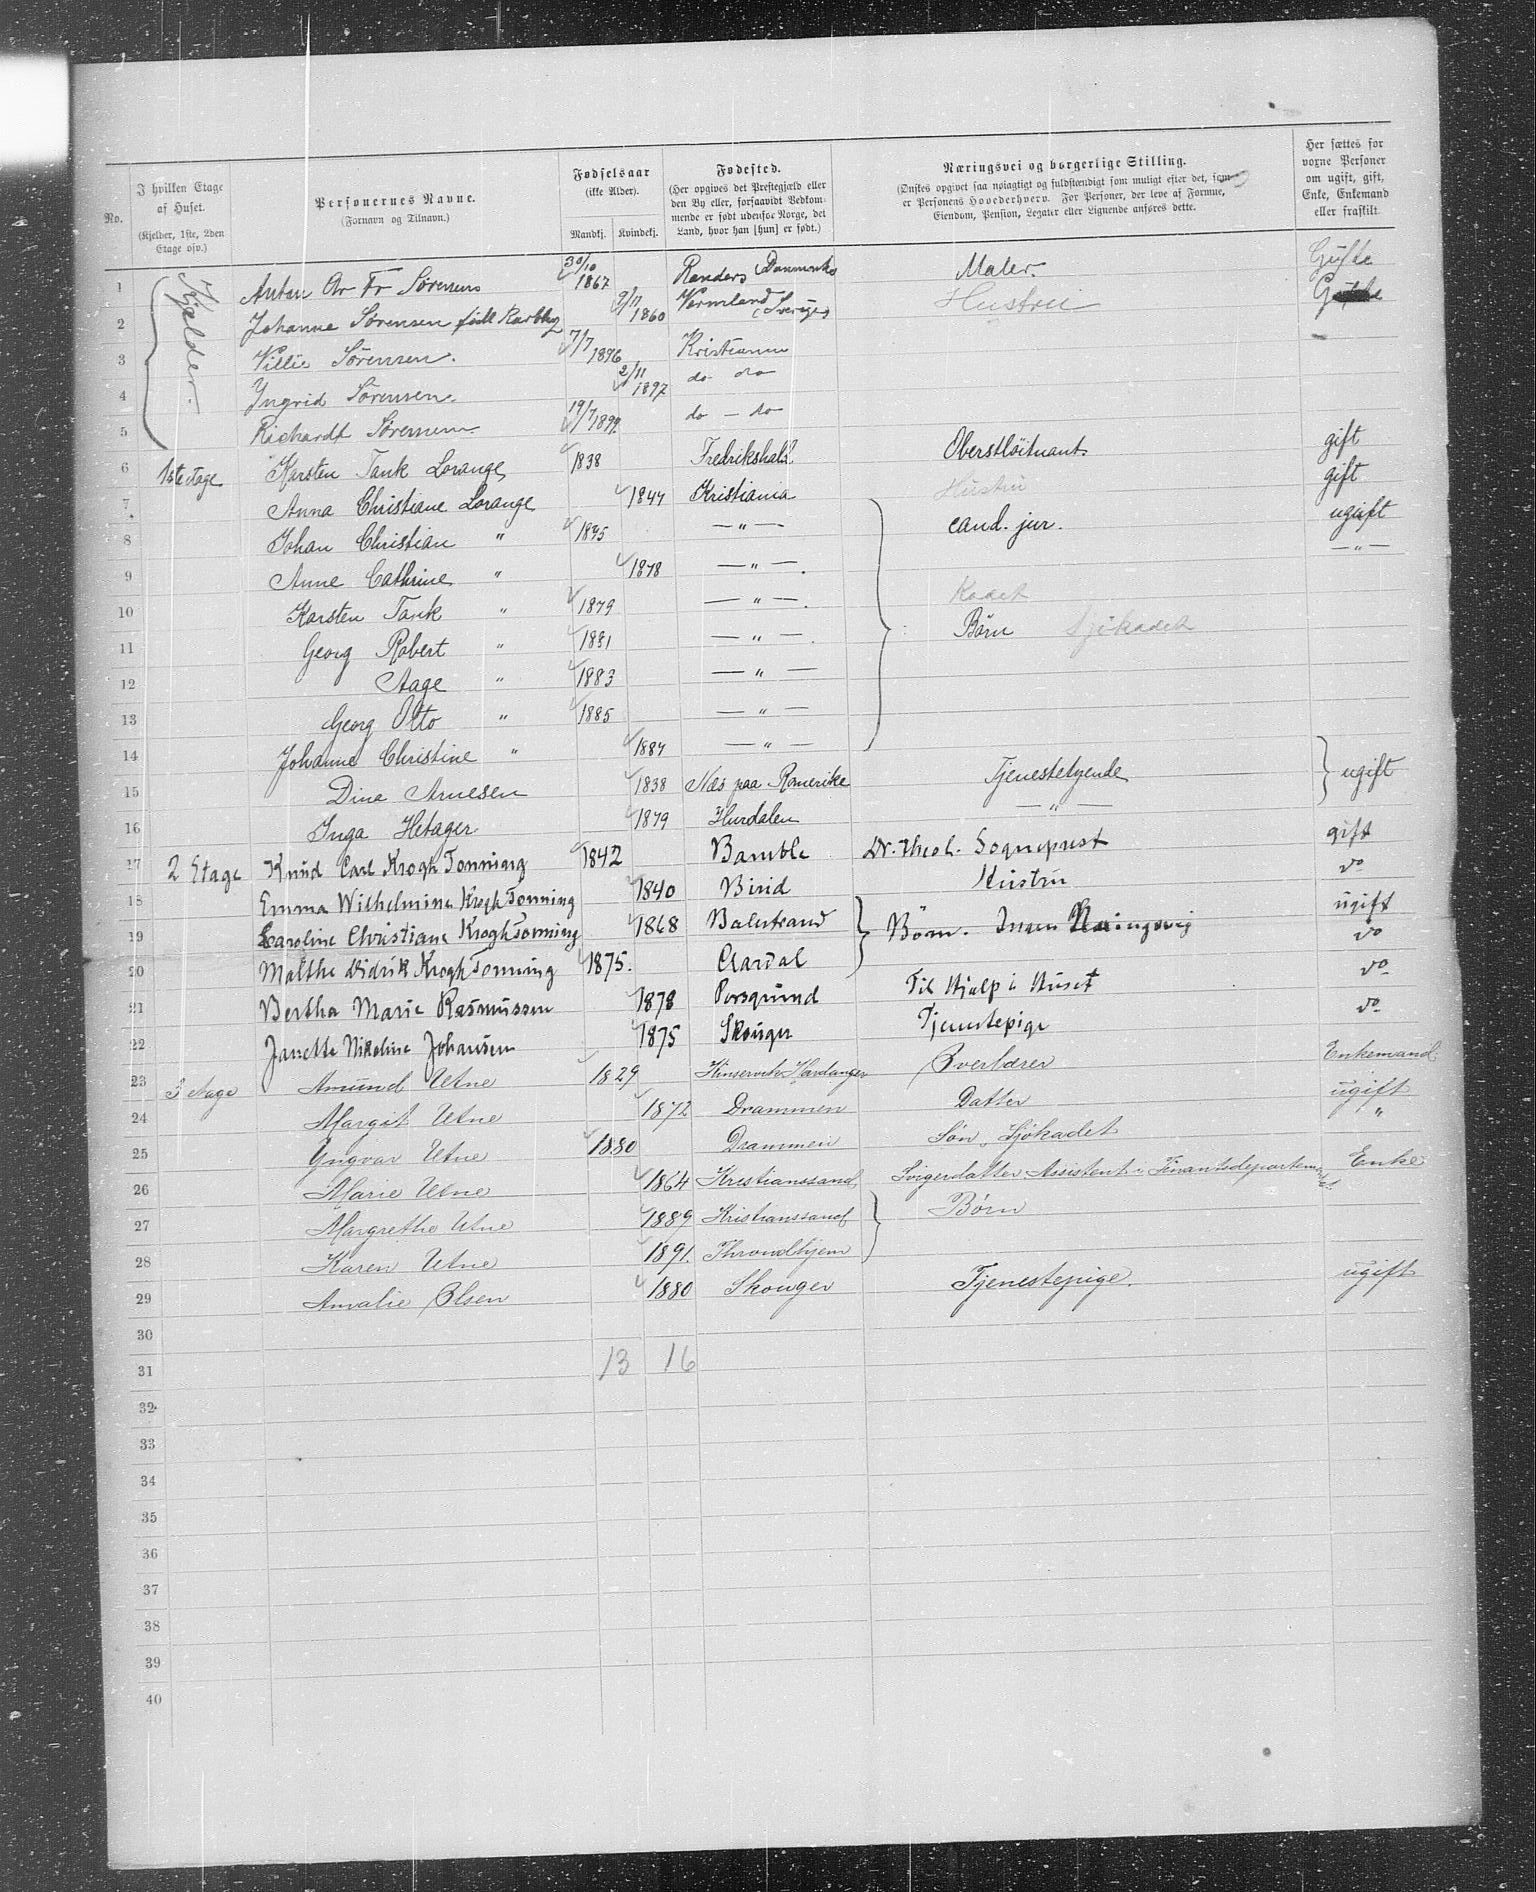 No. | I hvilken Etage af Huset. (Kjelder, 1ste, 2den Etage osv.) | Personernes Navne. (Fornavn og Tilnavn.) | Fødselsaar (ikke Alder). Mandkj. Kvindekj. | Fødested. (Her opgives det Prestegjæld eller den By eller, forsaavidt Vedkommende er født udenfor Norge, det Land, hvor han [hun] er født.) | Næringsvei og borgerlige Stilling. (Ønskes opgivet saa nøiagtigt og fuldstændigt som muligt efter det, som er Personens Hovederhverv. For Personer, der leve af Formue, Eiendom, Pension, Legater eller Lignende anføres dette. | Her sættes for voxne Personer om ugift, gift, Enke, Enkemand eller fraskilt.
1 Kjelder. Anton Chr Fr Sørensen 30/10 1867 Randers (Danmark) Maler. Gifte
2 Johanne Sørensen født Karlby 9/11 1860 Vermland (Sverige) Hustru
3 Villie Sørensen. 7/7 1896 Kristiania
4 Yngrid Sørensen. 2/11 1897 do do
5 Richardt Sørensen. 19/7 1899. do — do
6 1ste Etage Karsten Tank Lorange 1838 Fredrikshald Oberstløitnant gift
7 Anna Christiane Lorange 1847 Kristiania Hustru gift
8 Johan Christian " 1875 — " — cand. jur. ugift
9 Anne Cathrine " 1878 — " — — " —
10 Karsten Tank " 1879 — " — Kadet
11 Georg Robert " 1881 — " — Børn Sjökadet
12 Aage " 1883 — " —
13 Georg Otto " 1885 — " —
14 Johanne Christine " 1887 — " —
15 Dina Arnesen 1838 Næs paa Romerike Tjenestetyende ugift
16 Inga Hetager 1879 Hurdalen — " —
17 2 Etage Knud Carl Krogh Tonning 1842 Bamble Dr. theol. Sogneprest gift
18 Emma Wilhelmine Krogh Tonning 1840 Birid Hustru do
19 Caroline Christiane Krogh Tonning 1868 Balestrand Børn. Ingen Næringsvej ugift
20 Malthe Didrik Krogh Tonning 1875. Aardal do
21 Bertha Marie Rasmussen 1878 Porsgrund Til Hjælp i Huset do
22 Janette Nikoline Johansen 1875 Skouger Tjenestepige do
23 3 Etage Amund Utne 1829 Kinservik Hardanger Overlærer Enkemand
24 Margit Utne 1872 Drammen Datter ugift
25 Yngvar Utne 1880 Drammen Søn, Sjökadet "
26 Marie Utne 1864 Kristianssand Svigerdatter, Assistent i Finantsdepartementet Enke
27 Margrethe Utne 1889 Kristianssand Børn
28 Karen Utne 1891. Throndhjem
29 Amalie Olsen 1880 Skouger Tjenestepige. ugift
30
31 13 16
32
33
34
35
36
37
38
39
40